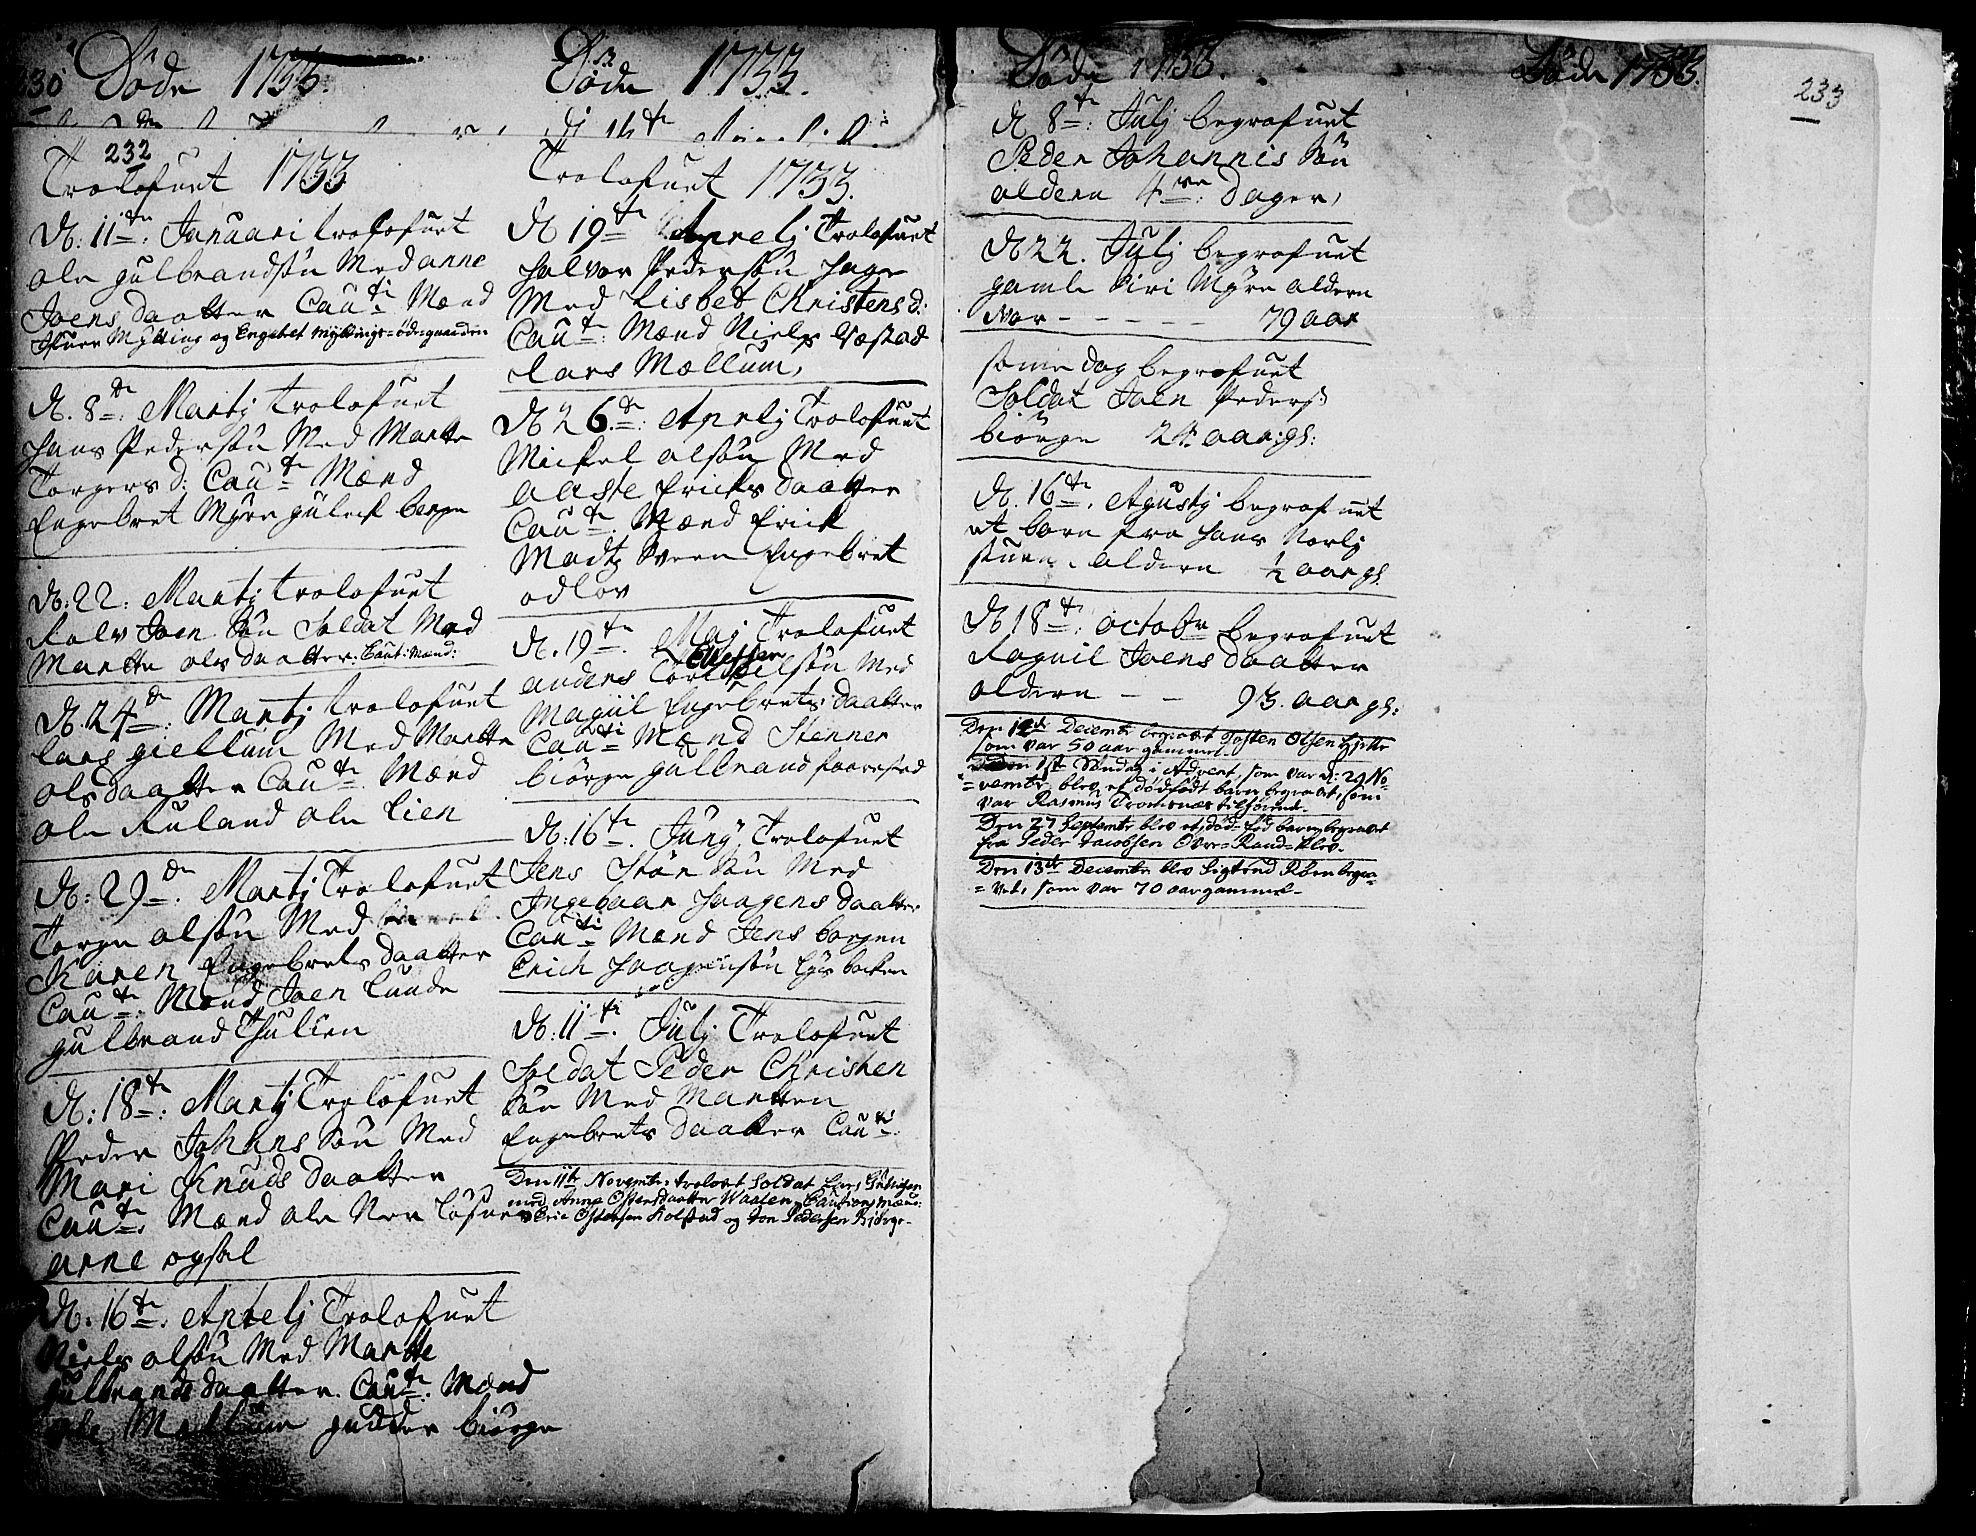 230 Döde 1733.
Döde 1733.
232
Trolofuet 1733
D: 11te: Januari trolofuet
ole gulbrandsøn Med anne
Joens daatter Cauti Mænd
Mytting og Engebret Myttings-ødegaarden
D. 8de: Martj trolofuet
Hans Pedersøn Med Marte
Torgers d: Caute Mænd
Engebret Myre gulech berge
D: 22: Martj trolofuet
Rolv Joen Søn Soldat Med
Marthe ols daatter. Caut: Mænd:
D. 24de: Martj trolofuet
lars giellum Med Marthe
olsdaatter Caute. Mænd
ole Ruland ole lien
D: 29de. Martj Trolofuet
Torge olsøn Med
Karen Engebrets daatter
Caute. Mænd Joen lunde
gulbrand Thulien
D: 18te: Martj Trolofuet
Peder Johans Søn Med
Mari Knuds daatter
Caute. Mænd ole
arne
D. 16te. Aprelj Trolofuet
Niels olsøn Med Marthe
gulbrands daatter. Caute. Mænd
Mællum gudder biørge
Trolofuet 1733.
D 19te Aprelj Trolofuet
Halvor Pedersøn Hage
Med Lisbet Christens d:
Caute. Mænd Niels
lars Mællum,
D 26.de: Aprelj Trolofuet
Michel olsøn Med
aaste Ericks daatter
Caute. Mænd Erick
Madtz Sveen Engebret
odlov
D. 19te. Maj Trolofuet
anders Med
Magnil Engebrets: daatter
Cauti Mænd Stenner
biørge gulbrand faarestad
D: 16te. Junj Trolofuet
Jens Stør Søn Med
Ingebaar Haagens daatter
Cauti Mænd Jens borgen
Erich Haagensøn
D: 11te. Julj Trolofuet
Soldat Peder Christen
Søn Med Marthen
Engebrets daatter Cauti.
Den 11te November trolovet Soldat
med Anne Ostensdaatter Waalen, Cautions mænd:
Eric Ostensen Kolstad og Jon Pedersen Biørge.
Döde 1733.
D 8te: Julj begrafuet
Peder Johannis Søn
aldern 4re: dager,
D 22. Julj begrafuet
gamle Siri Myre aldern
Var - - - - - 79 aar
samme dag begrafuet
Soldat Joen Peders:
biörge 24: aar: gl:
D. 16te. Agustj begrafuet
et barn fra Hans Norlj
stuen. aldern ½ aar gl.
D 18te: october begrafuet
Ragnil Joens daatter
aldern - - 93. aar gl:
Den 12te Decembr begravet Josten Olsen
som var 50 aar gammel.
Den 1ste Søndag i Advent, som var d: 29 No-
=vembr, blev et dødfødt barn begravet, som
var Rasmus Tromsnæs tilhørende.
Den 27 Septembr blev et død-fød barn begravet
fra Peder Jacobsen Øvre-Rand=klev.
Den 13de Decembr blev Sigtrud Røen begra=
=vet, som var 70 aar gammel.
Döde 1733.
233